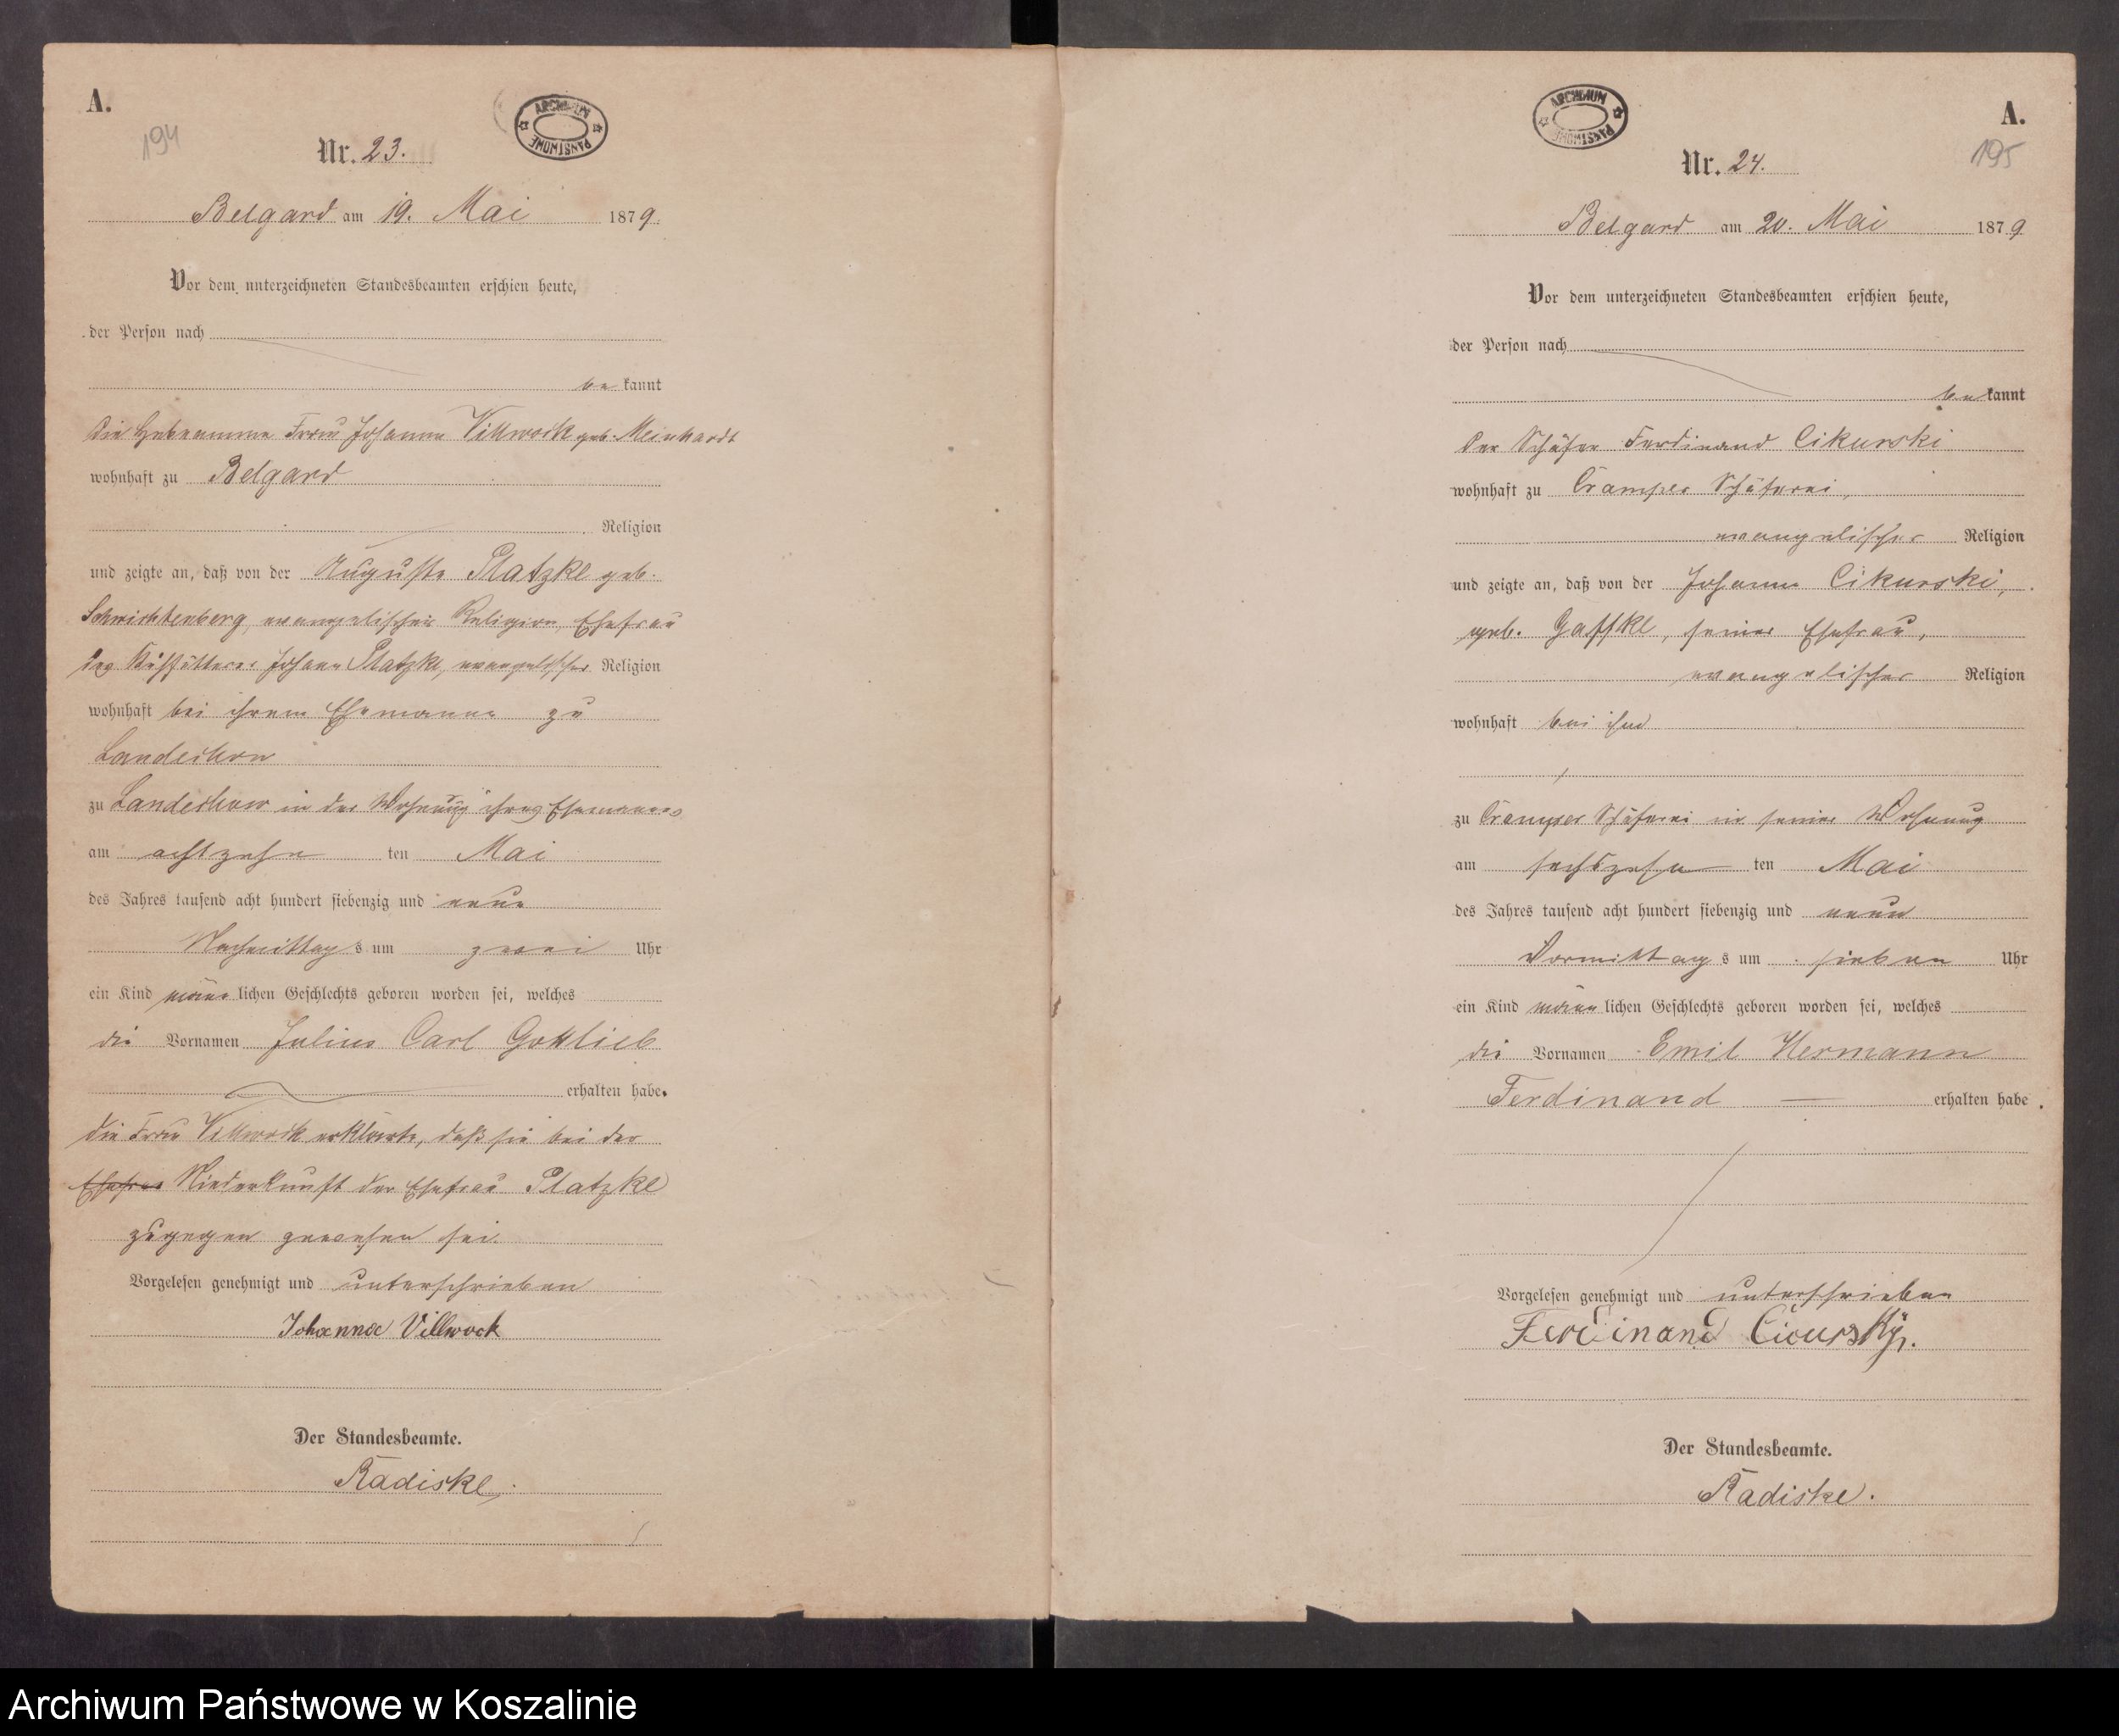 A.
194
ARCHIWUM PAŃSTWOWE
Nr. 23.
Belgard am 19. Mai 1879.
Vor dem unterzeichneten Standesbeamten erschien heute,
der Person nach
be kannt
die Hebeamme Frau Johanna Villwock geb. Meinhardt
wohnhaft zu Belgard
Religion
und zeigte an, daß von der Auguste Platzke geb.
Schwichtenberg, evangelischer Religion, Ehefrau
des Johann Platzke, evangelischer Religion
wohnhaft bei ihrem Ehemanne zu
Landechow
zu Landechow in der Wohnung ihres Ehemannes
am achtzehn ten Mai
des Jahres tausend acht hundert siebenzig und neun
Nachmittag s um zwei Uhr
ein Kind männ lichen Geschlechts geboren worden sei, welches
die Vornamen Julius Carl Gottlieb
erhalten habe.
die Frau Villwock erklärte, daß sie bei der
Ehefrau Niederkunft der Ehefrau Platzke
zugegen gewesen sei.
Vorgelesen genehmigt und unterschrieben
Johanna Villwock
Der Standesbeamte.
Radiske.
ARCHIWUM PAŃSTWOWE
A.
195
Nr. 24.
Belgard am 20. Mai 1879
Vor dem unterzeichneten Standesbeamten erschien heute,
der Person nach
be kannt
der Schäfer Ferdinand Cikurski
wohnhaft zu Cramper Schäferei,
evangelischer Religion
und zeigte an, daß von der Johanna Cikurski,
geb. Gaffke, seiner Ehefrau,
evangelischer Religion
wohnhaft bei ihm
zu Cramper Schäferei in seiner Wohnung
am sechszehn ten Mai
des Jahres tausend acht hundert siebenzig und neun
Vormittag s um sieben Uhr
ein Kind männ lichen Geschlechts geboren worden sei, welches
die Vornamen Emil Hermann
Ferdinand erhalten habe.
Vorgelesen genehmigt und unterschrieben
Ferdinand Cicursky.
Der Standesbeamte.
Radiske.
Archiwum Państwowe w Koszalinie